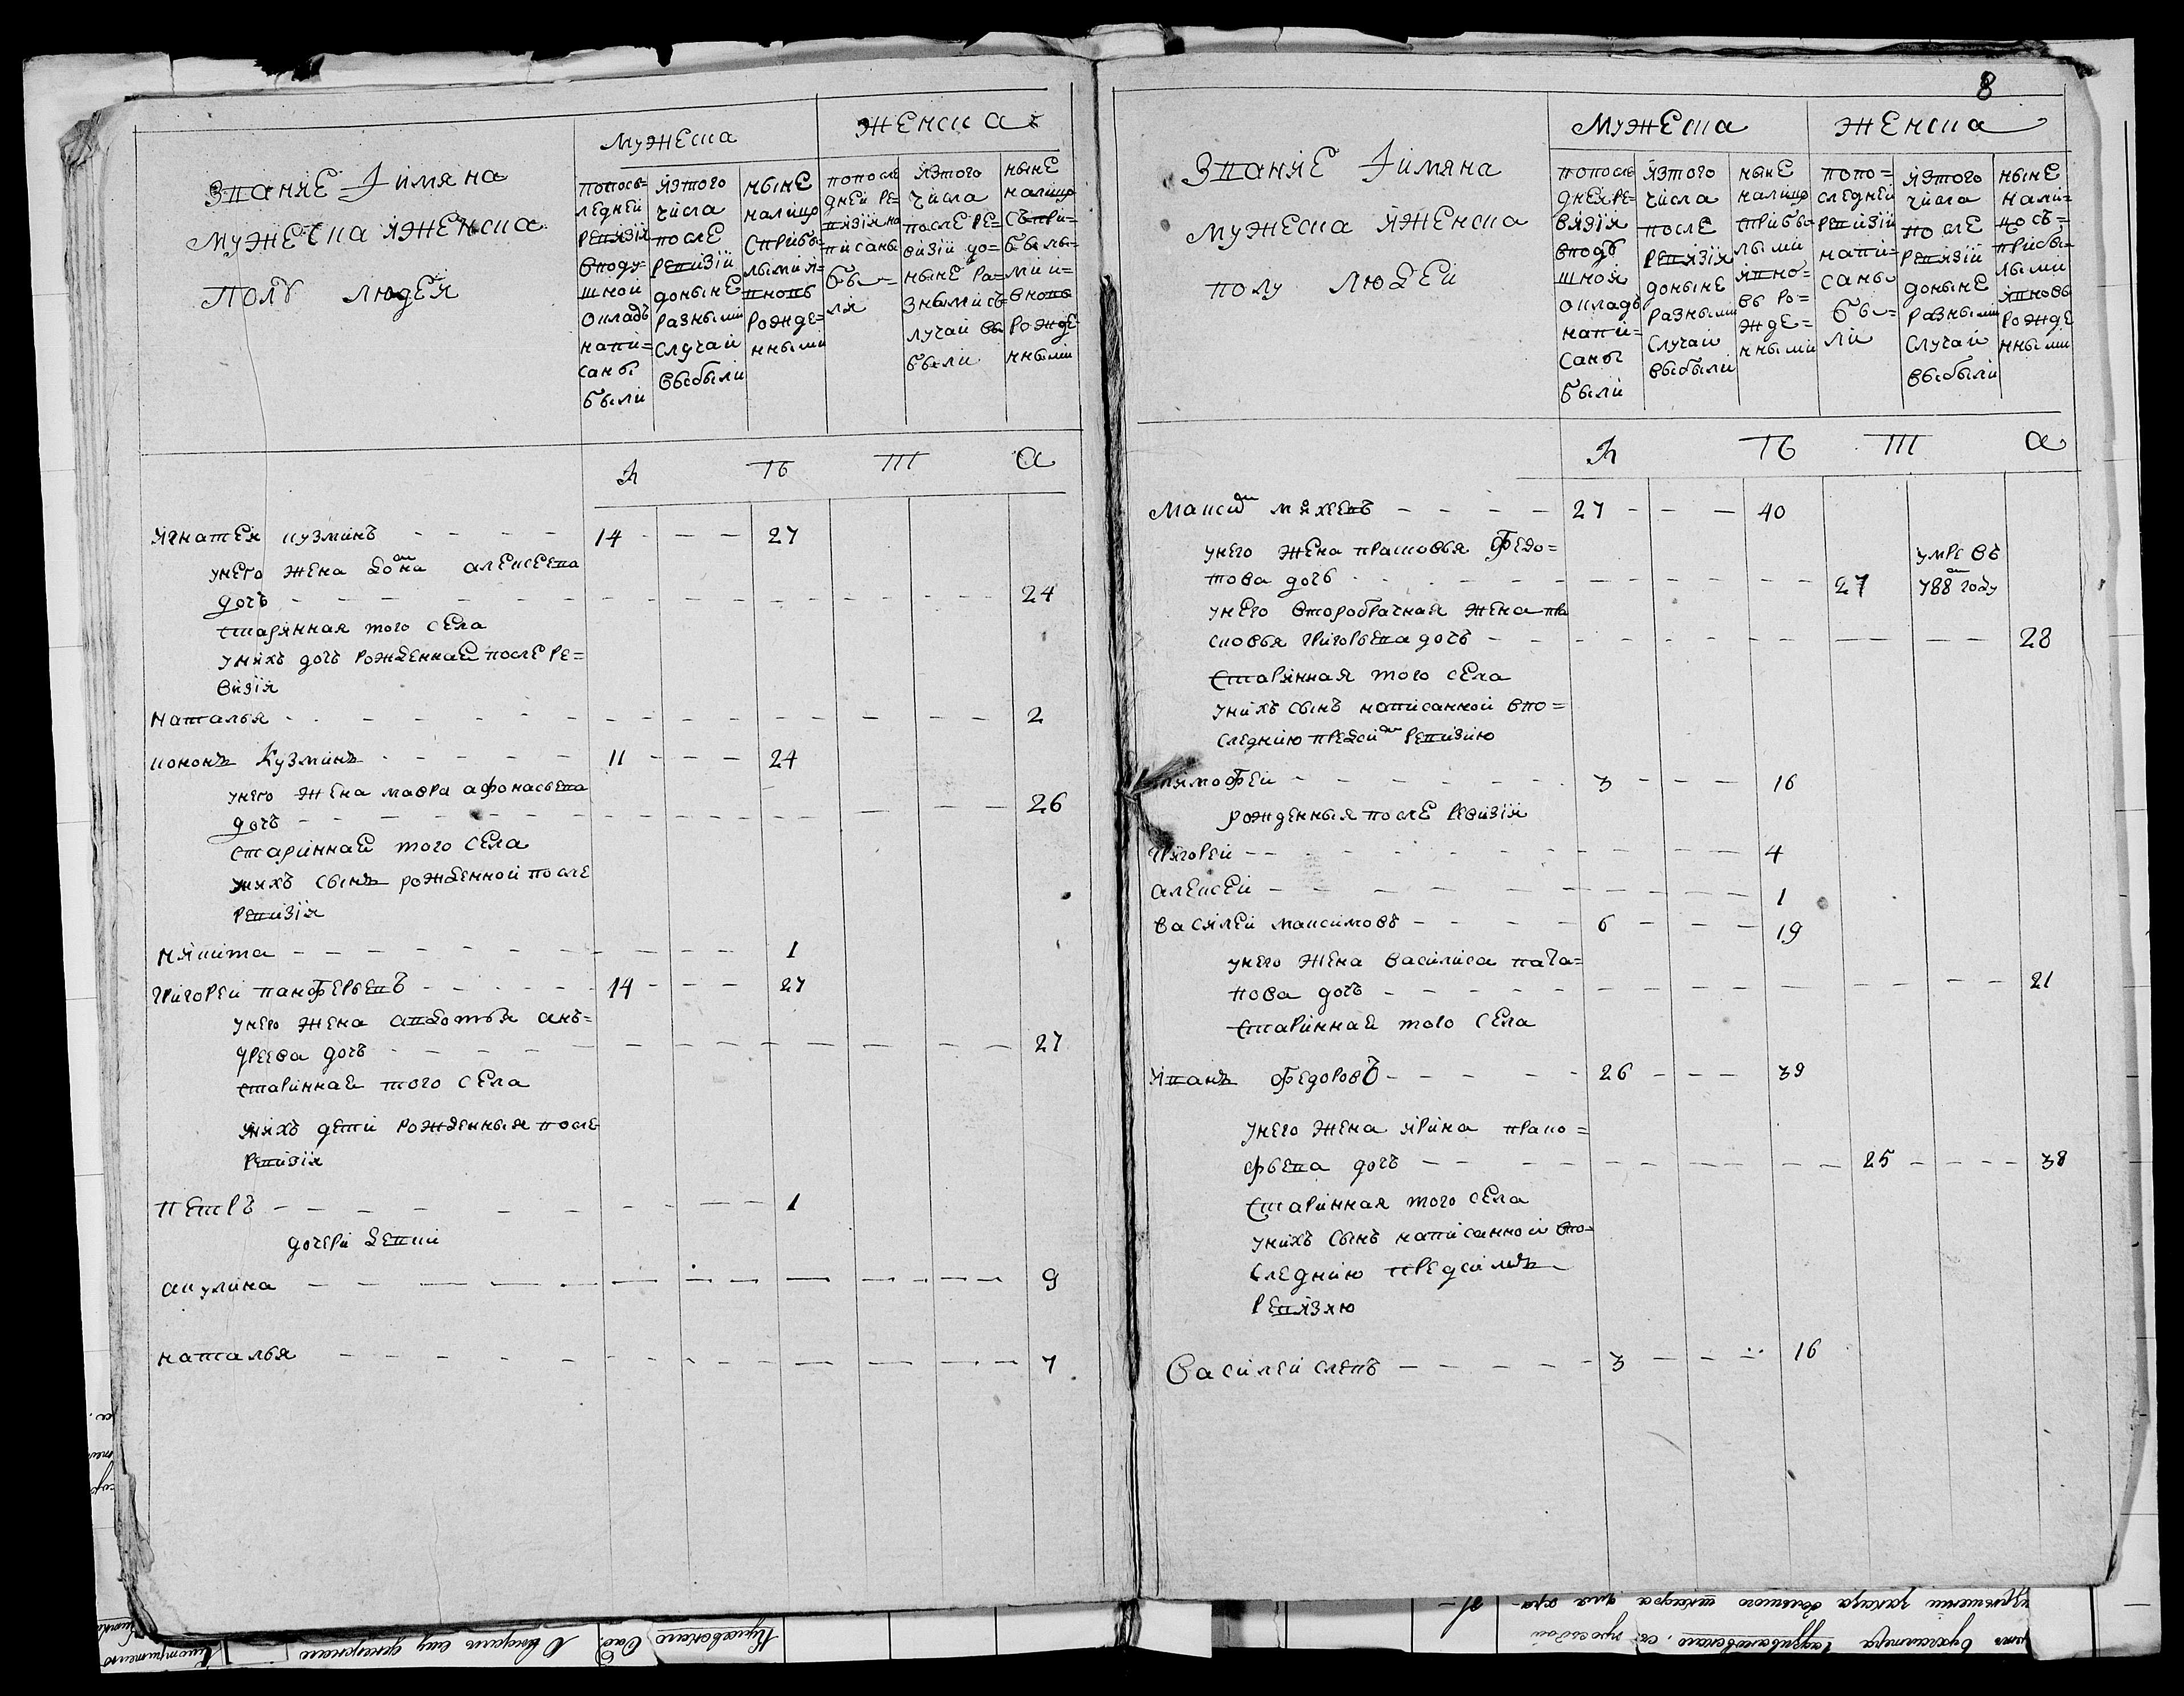 Звание Iимяна
мужеска иженска
полу людей
мужеска
женска
попось-
ледней
ревизiи
вподу-
шной
окладъ
напи-
саны
были
изтого
числа
после
ревизiи
доныне
разными
случаи
выбыли
ныне
налицо
сприбы-
лыми и-
вновь
рожде-
нными
попосле
дней ре-
визiи на
писаны
бы-
ли
изтого
числа
после ре-
визiи до-
ныне ра-
зными съ
лучаи вы
были
ныне
налицо
съпри-
былы-
ми и-
вновь
рожде
нными
л т ъ
Игнатей кузминъ - - - 14 - - - 27
унего жена алексеева
дочь - - - 24
старинная того села
унихъ дочь рожденная после ре=
визiи
Наталья - - - 2
кононъ Кузминъ - - - 11 - - - 24
унего жена мавра афонасьева
дочь - - - 26
стариннай того села
унихъ сынъ рожденной после
ревизiи
никита - - - 1
григорей панферьевъ - - - 14 - - - 27
унего жена авдотья анъ=
дреева дочь - - - 27
стариннай того села
унихъ дети рожденныя после
ревизiи
петръ - - - 1
дочери девки
акулина - - - 9
наталья - - - 7
8
Звание Iимяна
мужеска иженска
полу людей
мужеска
женска
попосле
дней ре-
визiи
вподу
шной
окладъ
напи-
саны
были
изтого
числа
после
ревизiи
доныне
разными
случаи
выбыли
ныне
налицо
сприбы-
лыми
ивно-
вь ро-
жде-
нными
попо=
следней
ревизiи
напи-
саны
бы-
ли
изтого
числа
после
ревизiи
доныне
разными
случаи
выбыли
ныне
нали-
цо съ-
прибы-
лыми
ивновь
рожде
нными
л т ъ
Максим михеевъ - - - 27 - - - 40
унего жена прасковья федо=
това дочь - - - 27 умре въ 788 году
унего второбрачная жена пра
сковья григорьева дочь - - - 28
старинная того села
унихъ сынъ написанной впо=
следнию предсим ревизию
тимофей - - - 3 - - - 16
рожденныя после ревизiи
григорей - - - 4
алексей - - - 1
василей максимовъ - - - 6 - - - 19
унего жена василиса
дочь - - - 21
стариннай того села
Иванъ федоровъ - - - 26 - - - 39
унего жена ирина проко=
фьева дочь - - - 25 - - - 38
старинная того села
унихъ сынъ написанной впо-
следнию предсимъ
ревизию
Василей слепъ - - - 3 - - - 16